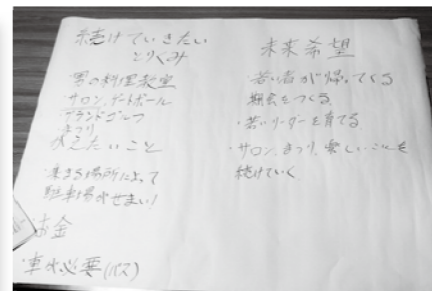 続けていきたい
とりくみ
男の料理教室
サロン、ゲートボール
グランドゴルフ
まつり
変えたいこと
・集まる場所によって
駐車場がせまい!
・お金
・車が必要(バス)
未来希望
・若い者が帰ってくる
機会をつくる
・若いリーダーを育てる
・サロン、まつり、楽しいことを
続けていく